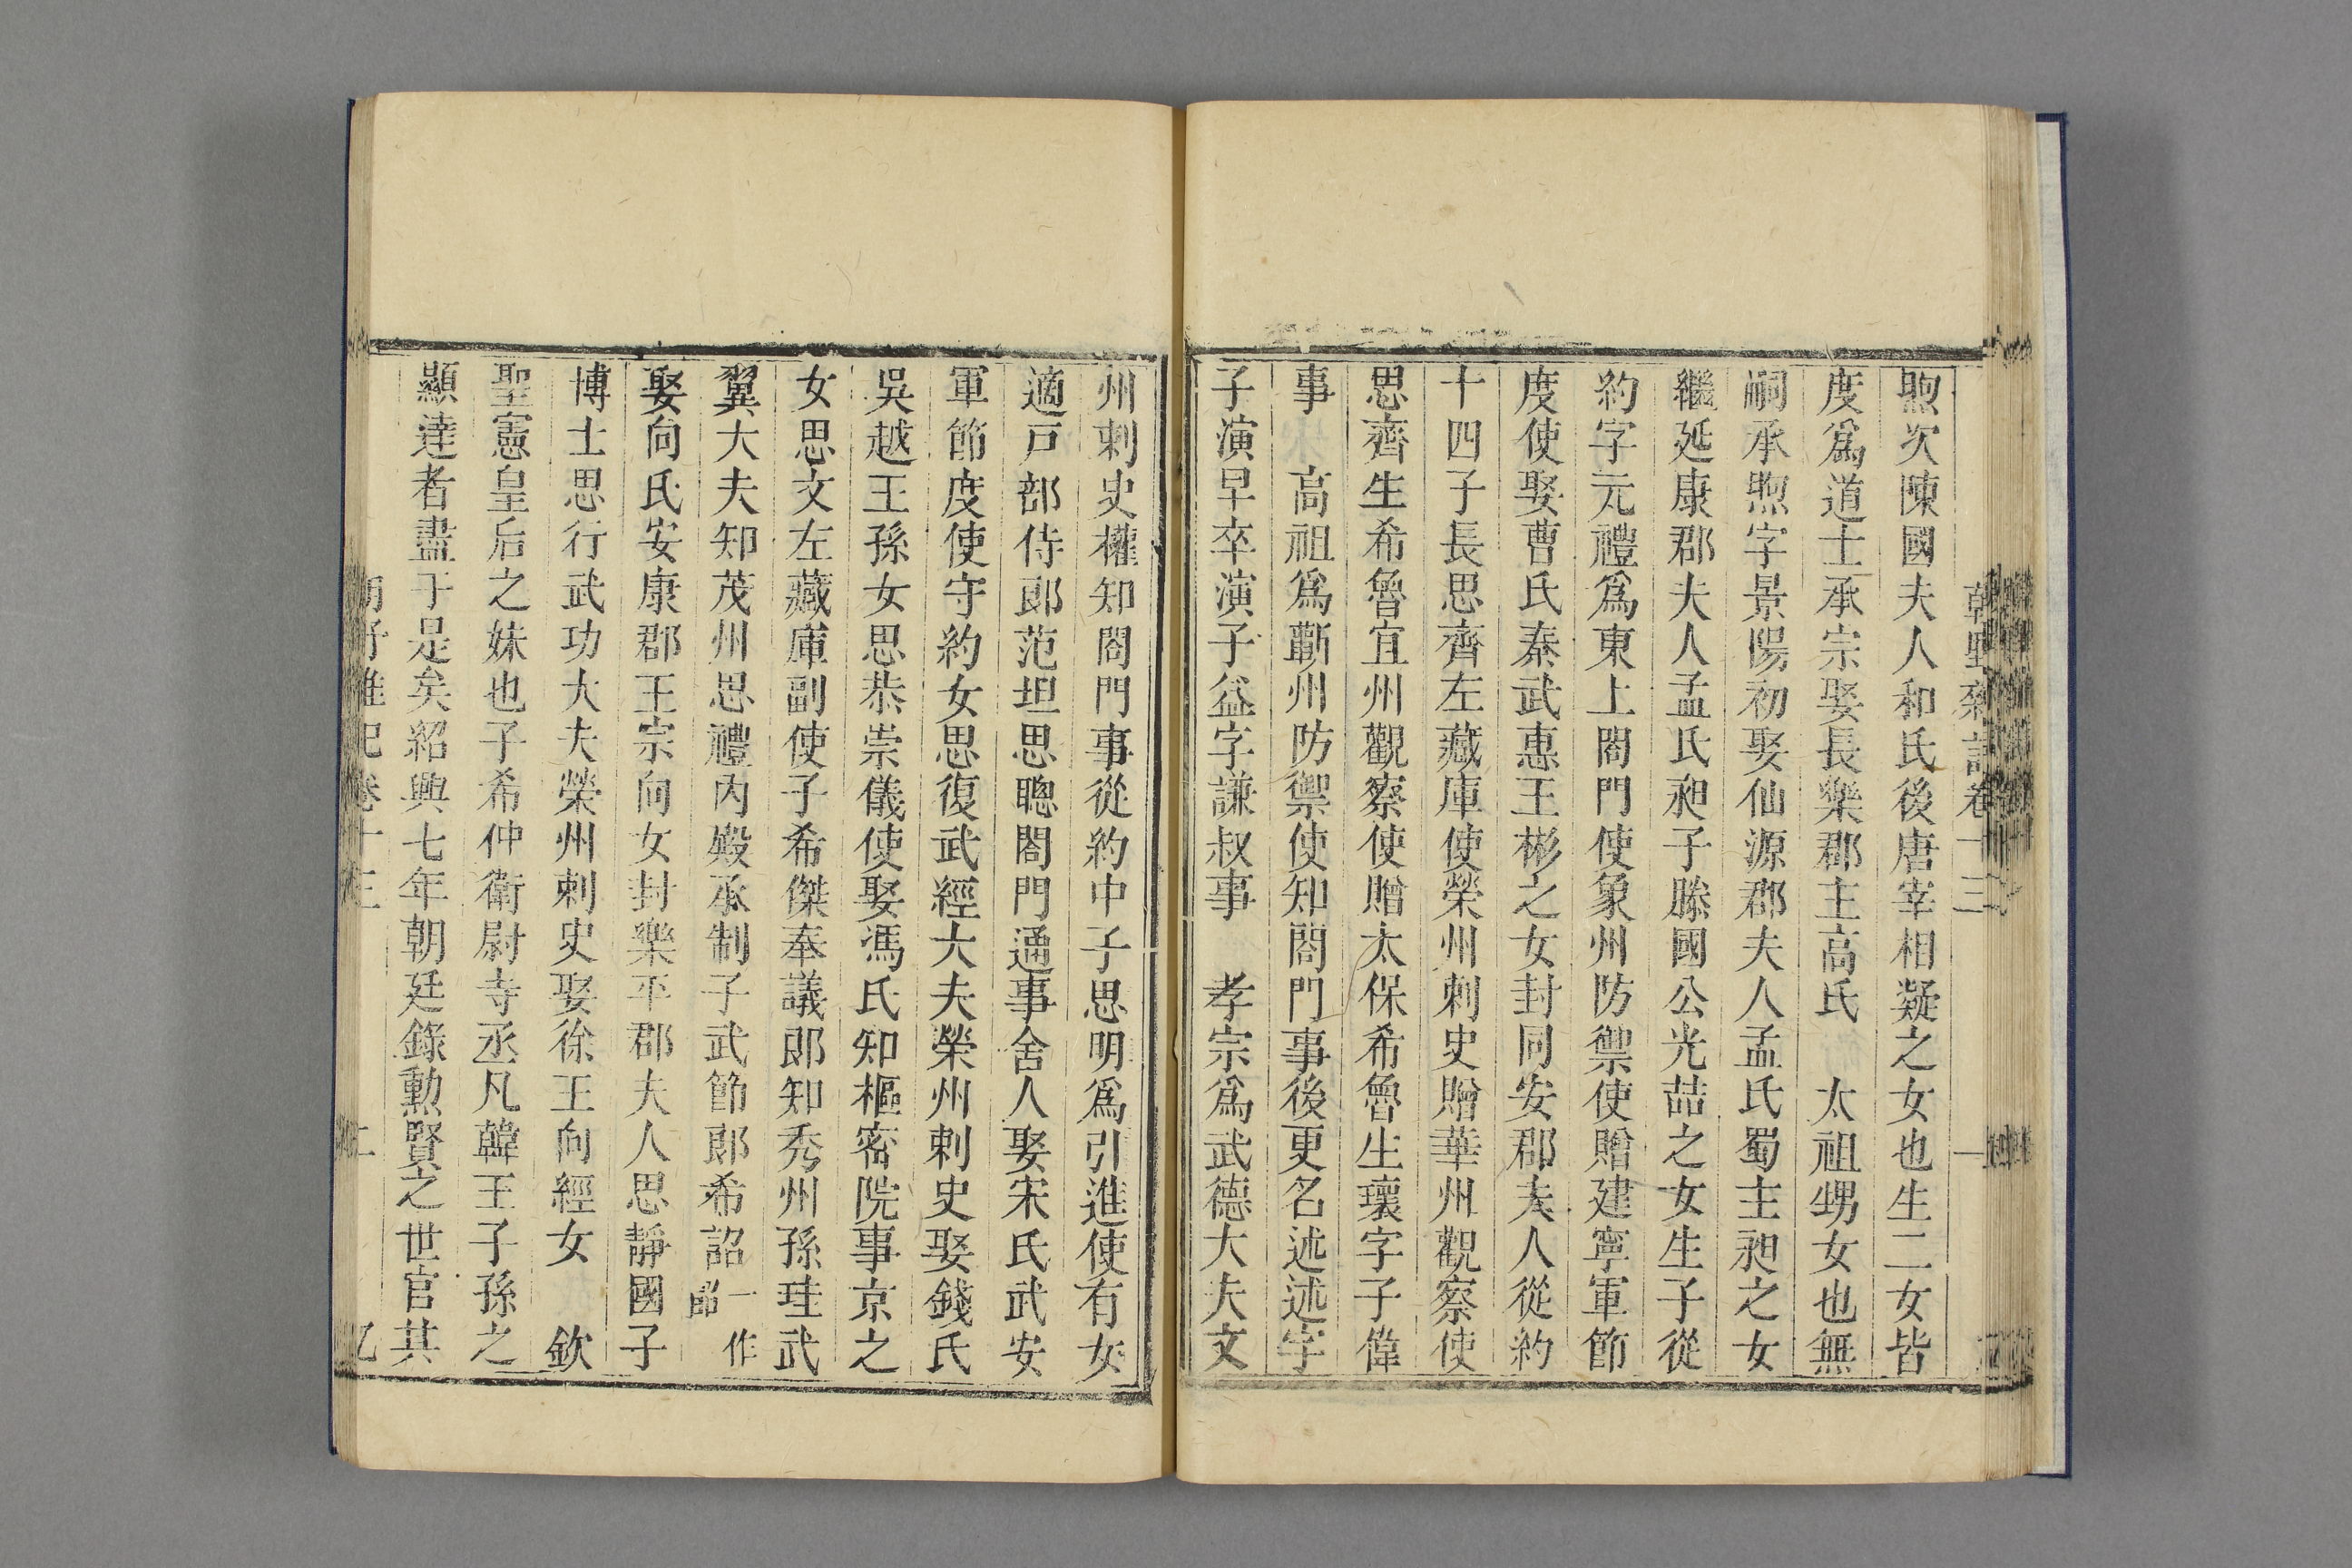 煦次陳國夫人和氏後唐宰相凝之女也生二女皆
度爲道士承宗娶長樂郡主高氏　太祖甥女也無
嗣承煦字景陽初娶仙源郡夫人孟氏蜀主昶之女
繼延康郡夫人孟氏昶子滕國公光喆之女生子從
約字元禮爲東上閤門使象州防禦使贈建寧軍節
度使娶曹氏秦武惠王彬之女封同安郡夫人從約
十四子長思齊左藏庫使榮州刺史贈華州觀察使
思齊生希魯宜州觀察使贈太保希魯生瓌字子偉
事　高祖爲蘄州防禦使知閤門事後更名述述字
子演早卒演子益字謙叔事　孝宗爲武德大夫文
州刺史權知閤門事從約中子思明爲引進使有女
適戸部侍郎范坦思聰閤門通事舍人娶宋氏武安
軍節度使守約女思復武經大夫榮州刺史娶錢氏
吳越王孫女思恭崇儀使娶馮氏知樞密院事京之
女思文左藏庫副使子希傑奉議郎知秀州孫珪武
翼大夫知茂州思禮內殿承制子武節郎希詔一作
娶向氏安康郡王宗向女封樂平郡夫人思靜國子
博士思行武功大夫榮州刺史娶徐王向經女　欽
聖憲皇后之妹也子希仲衛尉寺丞凡韓王子孫之
顯達者盡于是矣紹興七年朝廷錄勳賢之世官其